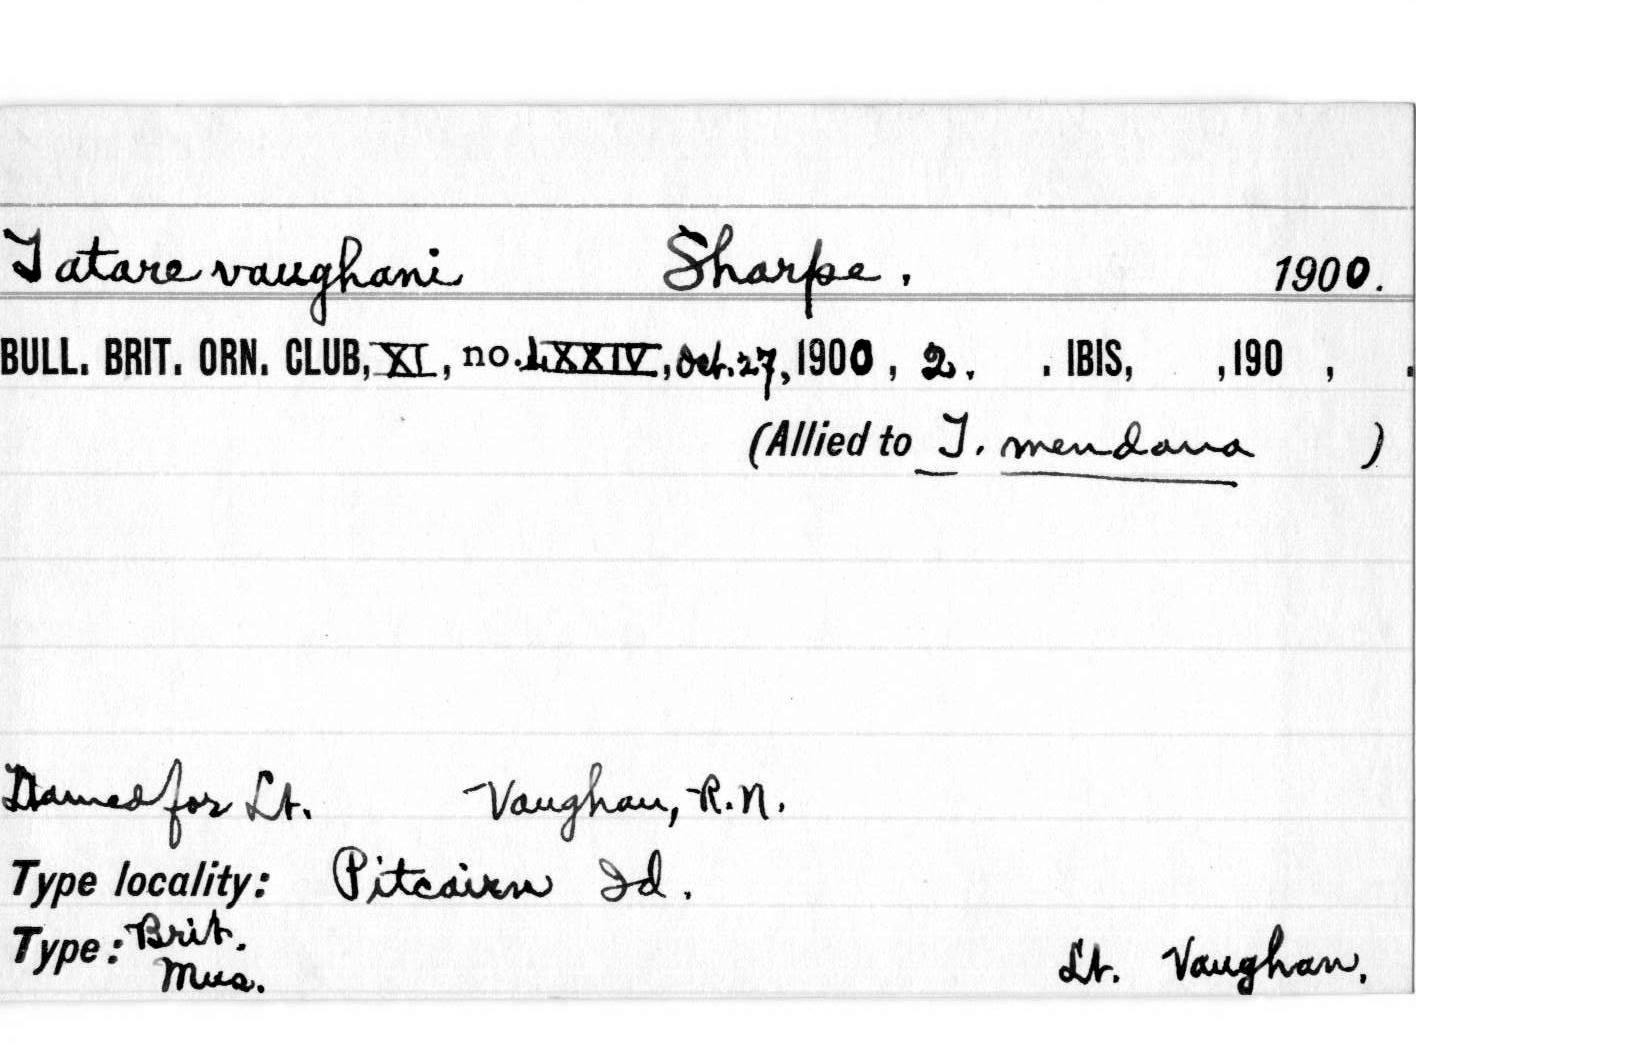 Tatare vaughani Sharpe. 1900.
BULL. BRIT. ORN. CLUB, XI, no. LXXIV, Oct. 27, 1900, 2. . IBIS, , 190 , .
(Allied to T. mendana )
Named for Lt. Vaughan, R.N.
Type locality: Pitcairn Id.
Type: Brit.
Mus. Lt. Vaughan.